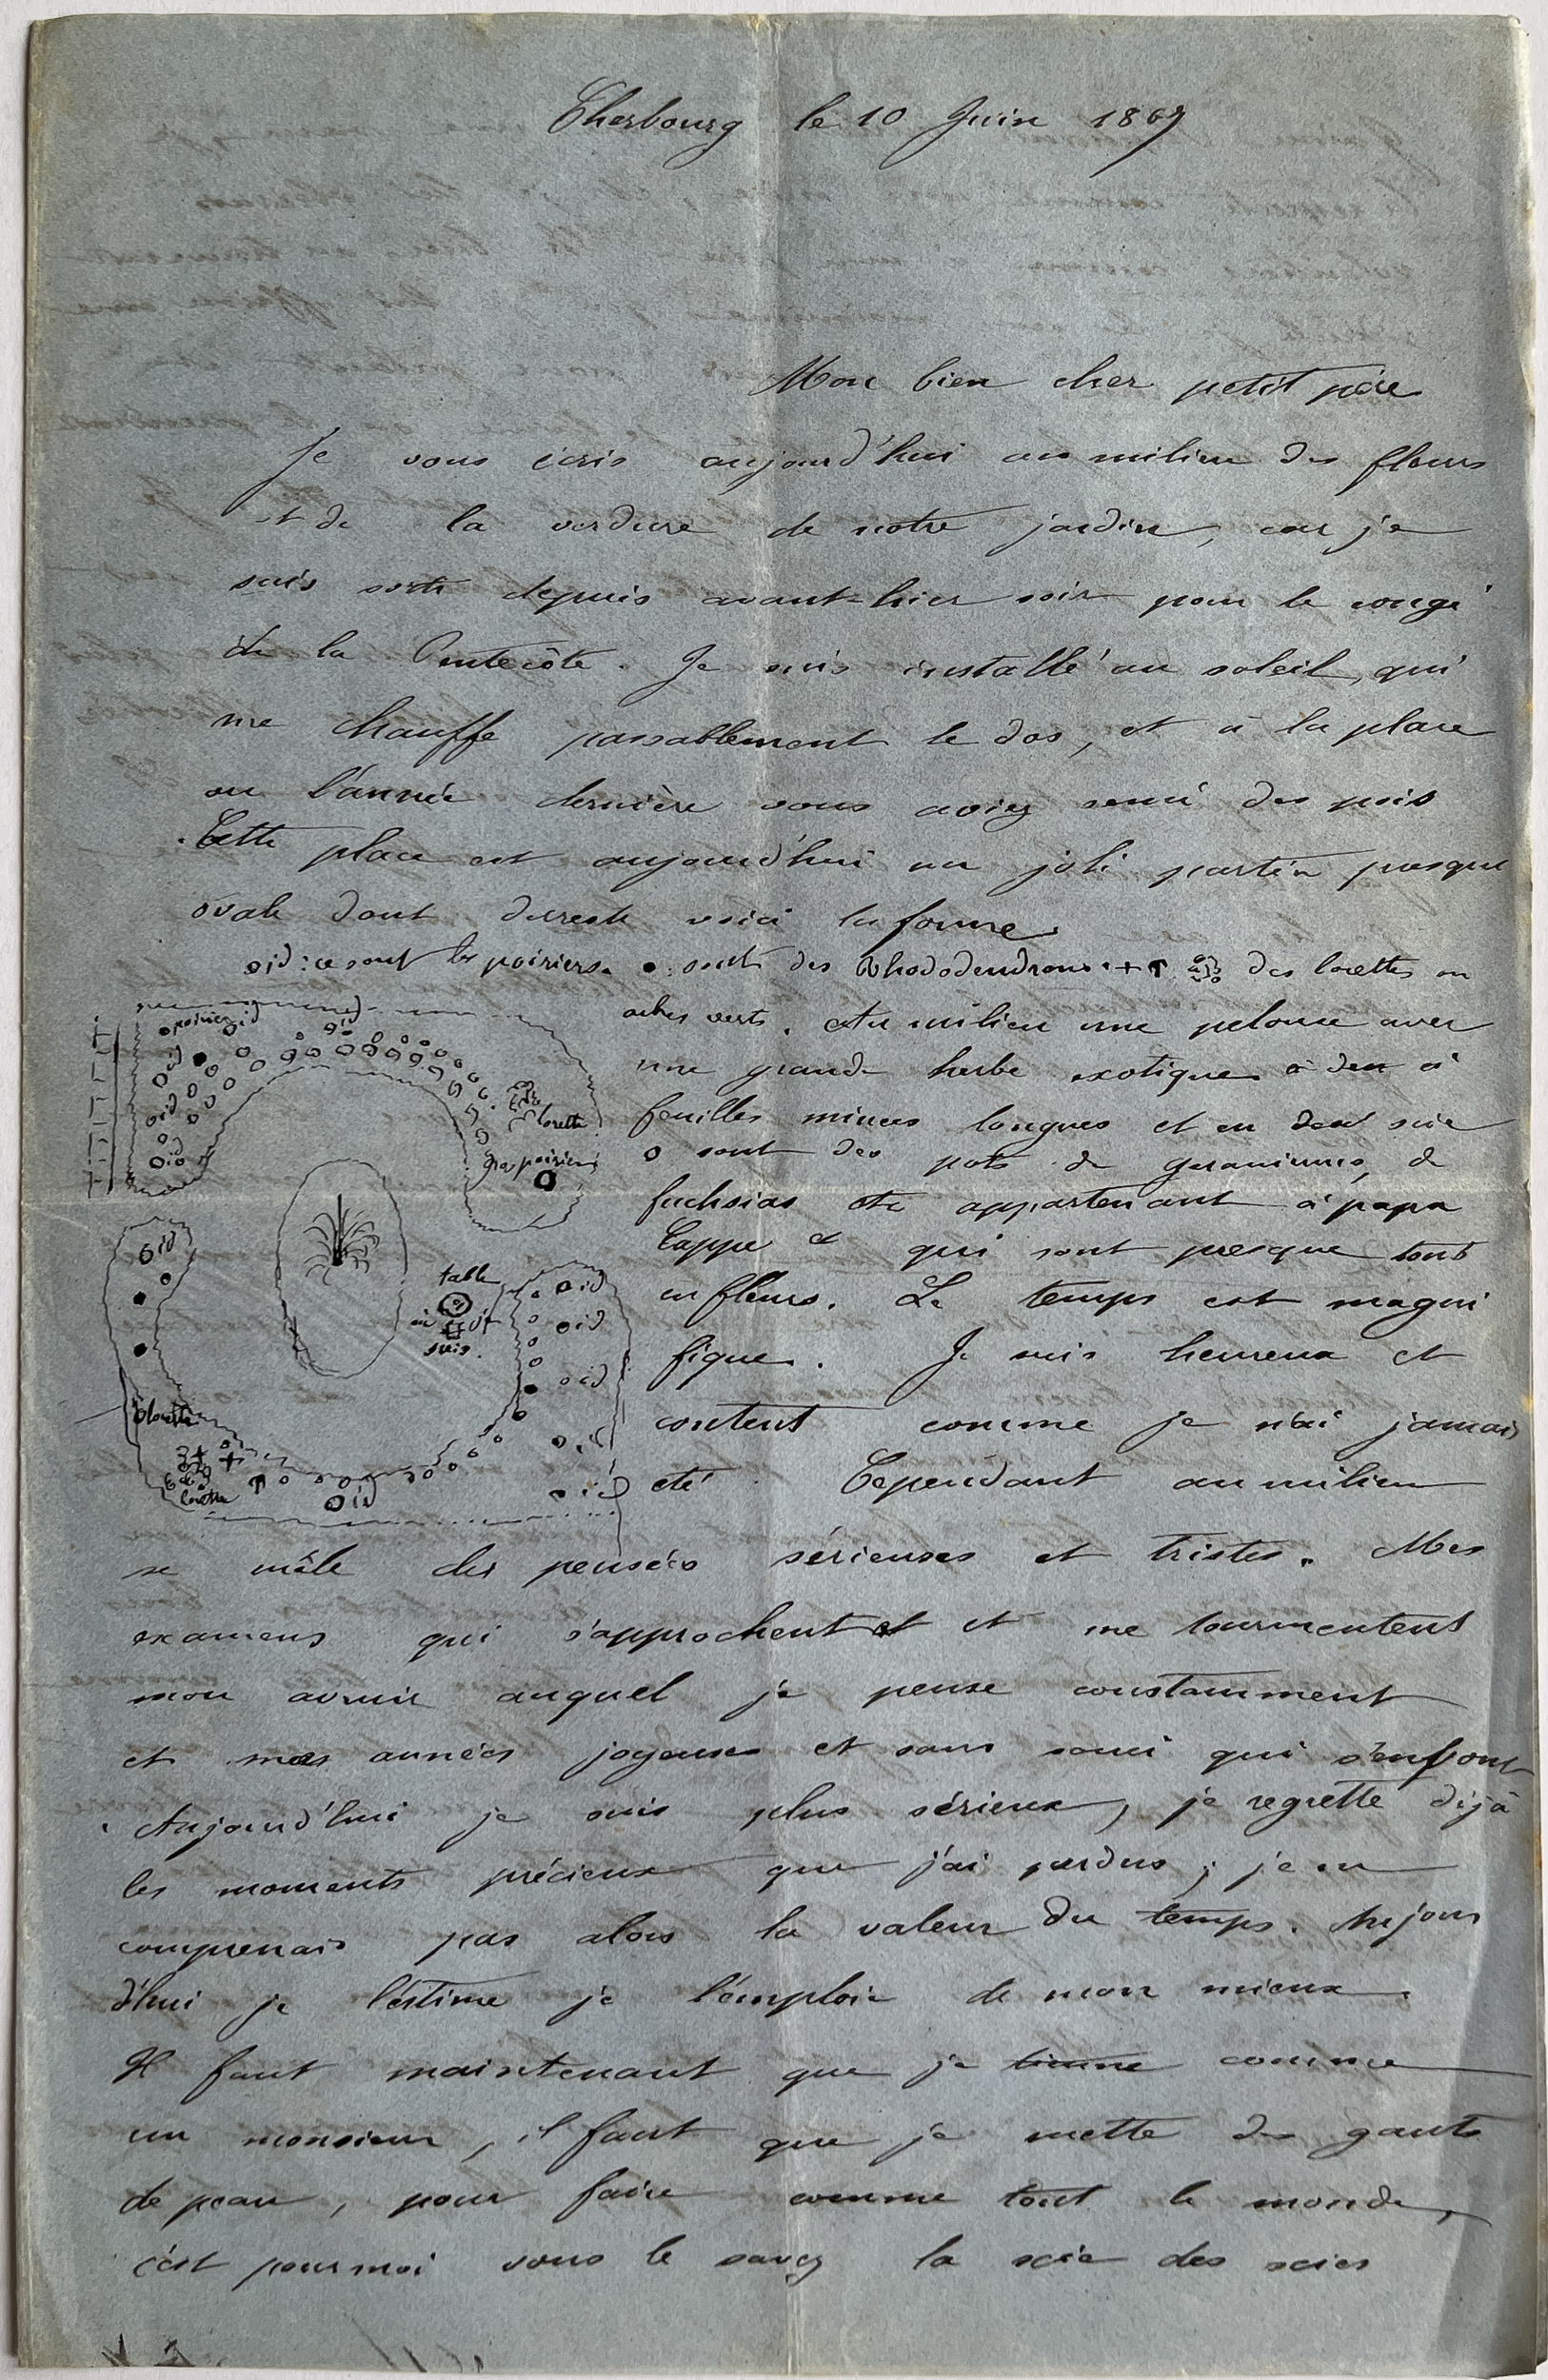 Cherbourg le 10 Juin 1867
Mon bien cher petit père
Je vous écris aujourd'hui au milieu des fleurs
et de la verdure de notre jardin, car je
suis sorti depuis avant-hier soir pour le congé
de la Pentecôte. Je suis installé au soleil, qui
me chauffe passablement le dos, et à la place
ou l'année dernière vous aviez semé des pois
Cette place est aujourd'hui un joli parterre presque
ovale dont dureste voici la forme.
oid : ce sont les poiriers. • sont des Rhododendrons + ↑ des lorettes ou
arbres verts. Au milieu une pelouse avec
une grande herbe exotique à den à
feuilles minces longues et en scie
o sont des pots de geraniums, de
fuchsias etc appartenant à papa
Cappe et qui sont presque tous
en fleurs. Le temps est magni
fique. Je suis heureux et
content comme je n'ai jamais
été Cependant au milieu
se mêle des pensées sérieuses et tristes. Mes
examens qui s'approchent et me tourmentent
mon avenir auquel je pense constamment
et mes années joyeuses et sans souci qui s'enfont
Aujourd'hui je suis plus sérieux, je regrette déjà
les moments précieux que j'ai perdus ; je en
comprenais pas alors la valeur du temps. Aujour
d'hui je l'estime je l'emploie de mon mieux.
Il faut maintenant que je comme
un monsieur, il faut que je mette des gants
de peau, pour faire comme tout le monde,
c'est pour moi vous le savez la scie des scies
poirier
oid
oid
oid
oid
oid
lorette
gros poirier
oid
table
où
suis
oid
oid
oid
lorette
lorette
oid